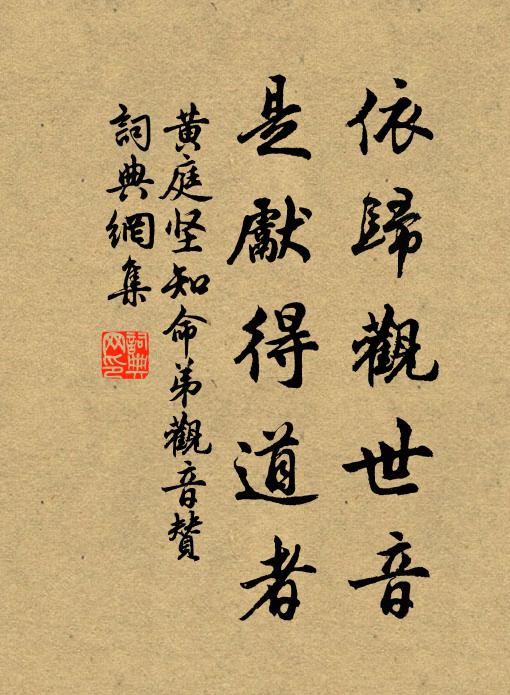 依歸觀世音
是獻得道者
黃庭坚知命弟觀音贊
詞典網集
詞典网印